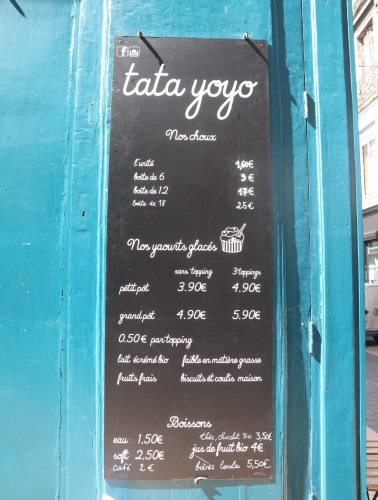 tata yoyo
Nos choux
l'unité 1,60€
boîte de 6 9€
boîte de 12 17€
boîte de 18 25€
Nos yaourts glacés
sans topping 3 toppings
petit pot 3.90€ 4.90€
grand pot 4.90€ 5.90€
0.50€ par topping
lait écrémé bio faible en matière grasse
fruits frais biscuits et coulis maison
Boissons
eau 1.50€ thés, chocolat Bio 3,50€
soft 2.50€ jus de fruit bio 4€
café 2€ bières locales 5,50€